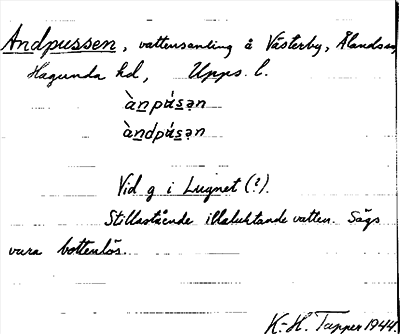 Andpussen, vattensamling å Västerby, Ålandssn,
Hagunda hd, Upps. l.
ànpúsən
àndpúsən
Vid g i Lugnet (?).
Stillastående illaluktande vatten. Sägs
vara bottenlös.
K.-H. Tapper 1944.